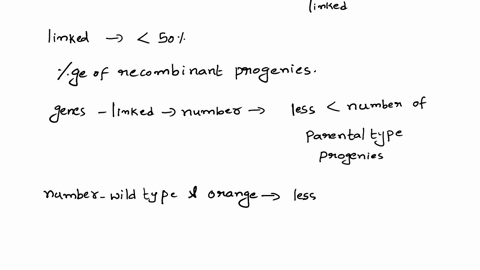 linked
linked → < 50%
%ge of recombinant progenies.
genes - linked → number → less < number of
parental type
progenies
number - wild type & orange → less